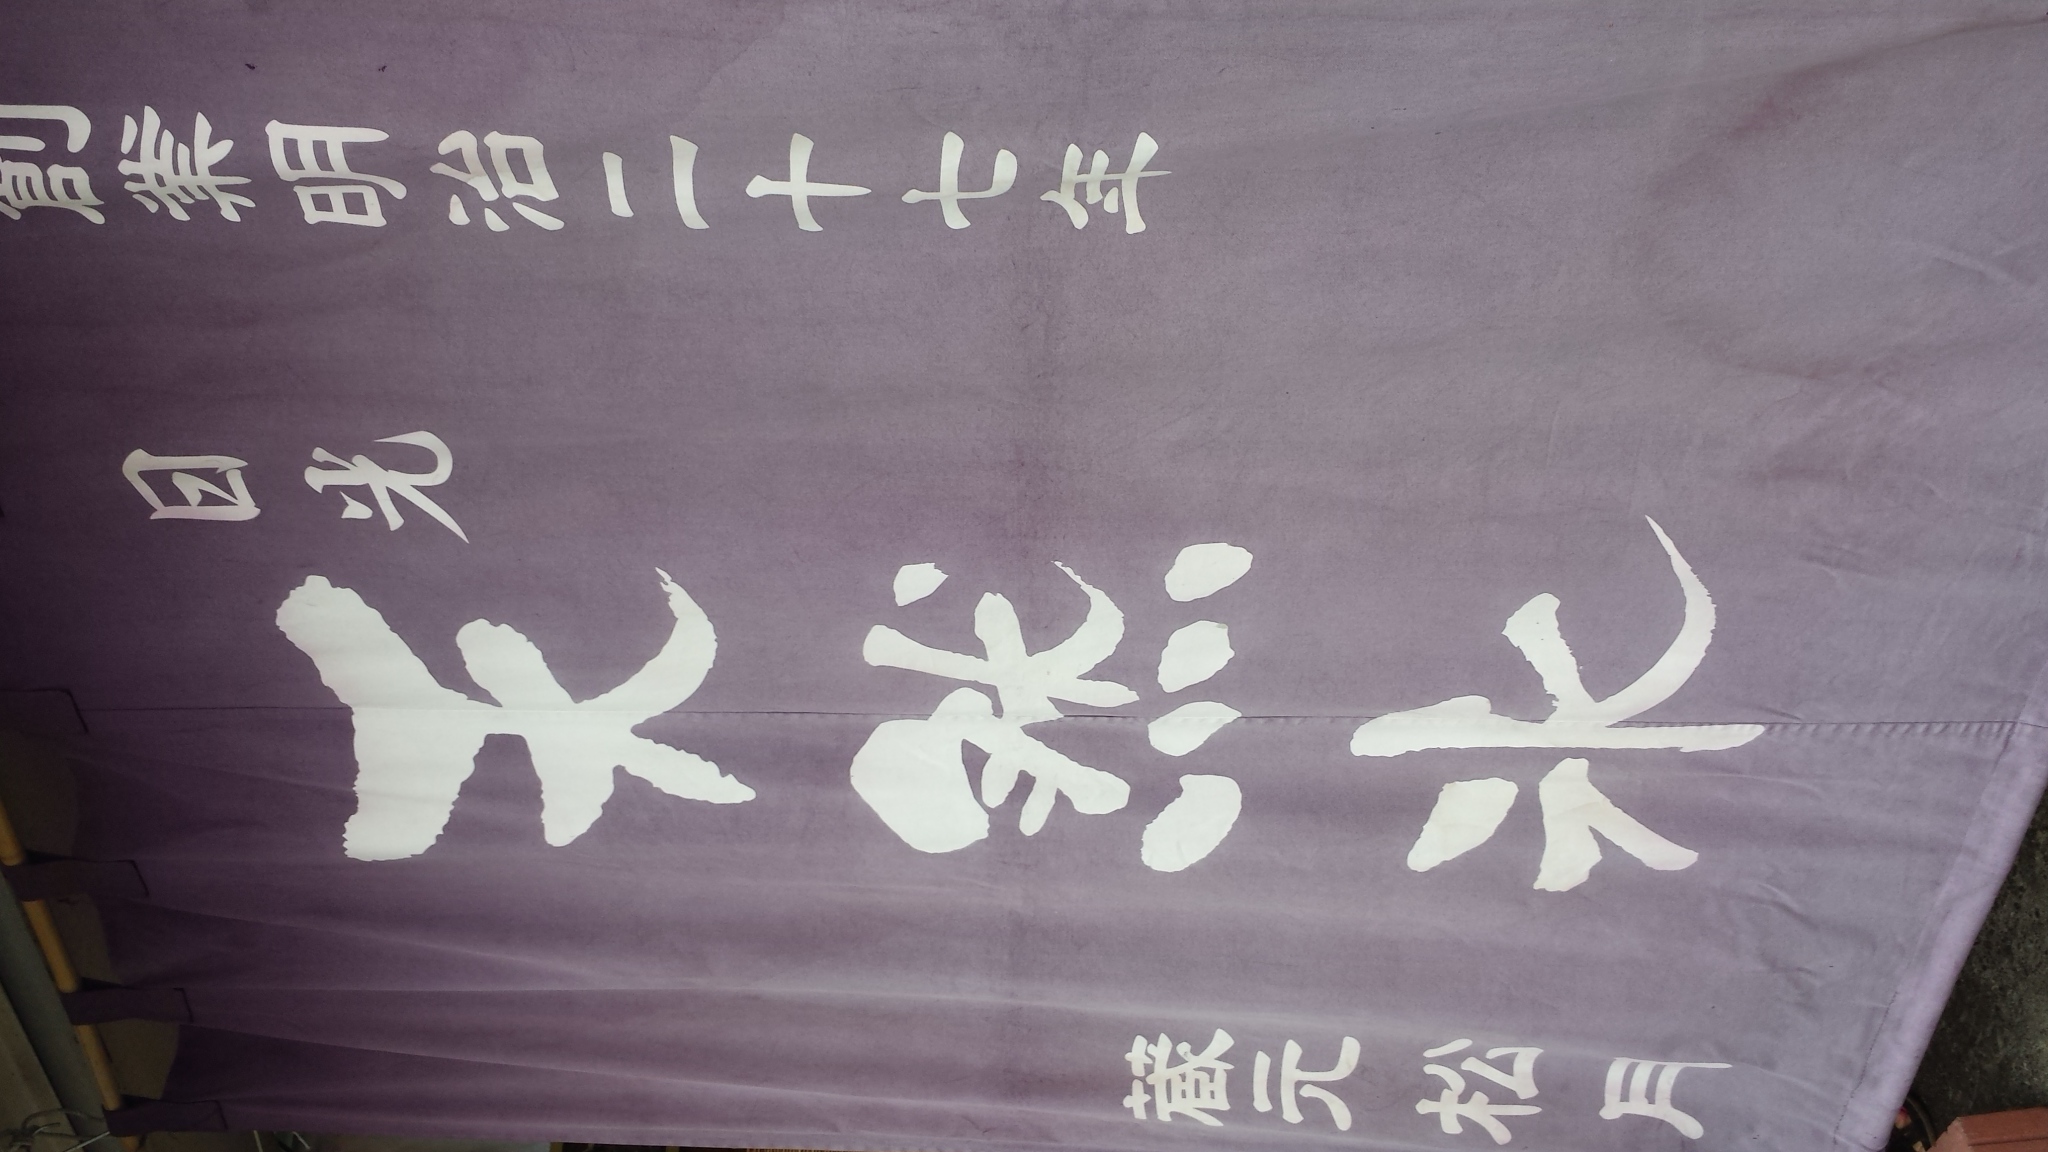 創業明治二十七年
日光
天然氷
蔵元松月